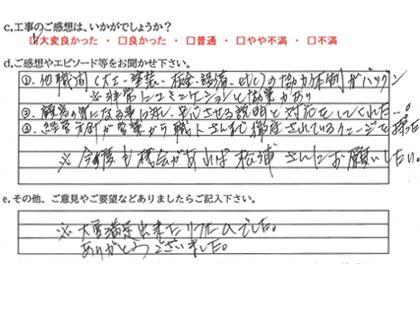 c,工事のご感想は、いかがでしょうか?
☑大変良かった ・ □良かった ・ □普通 ・ □やや不満 ・ □不満
d,ご感想やエピソード等をお聞かせ下さい。
①、他職間(大工・塗装・板金・設備、etc)の協力体制がバツグン
※非常にコミニケーションと協業があり
②、顧客が気になる事に対し、安心させる説明と対応をしてくれた…。
③、経営方針が営業から職人さんまで されているイメージを
※今後も機会があれば松浦さんにお願いしたい。
e,その他、ご意見やご要望などありましたらご記入下さい。
※大変満足出来たリフォームでした。
ありがとうございました。